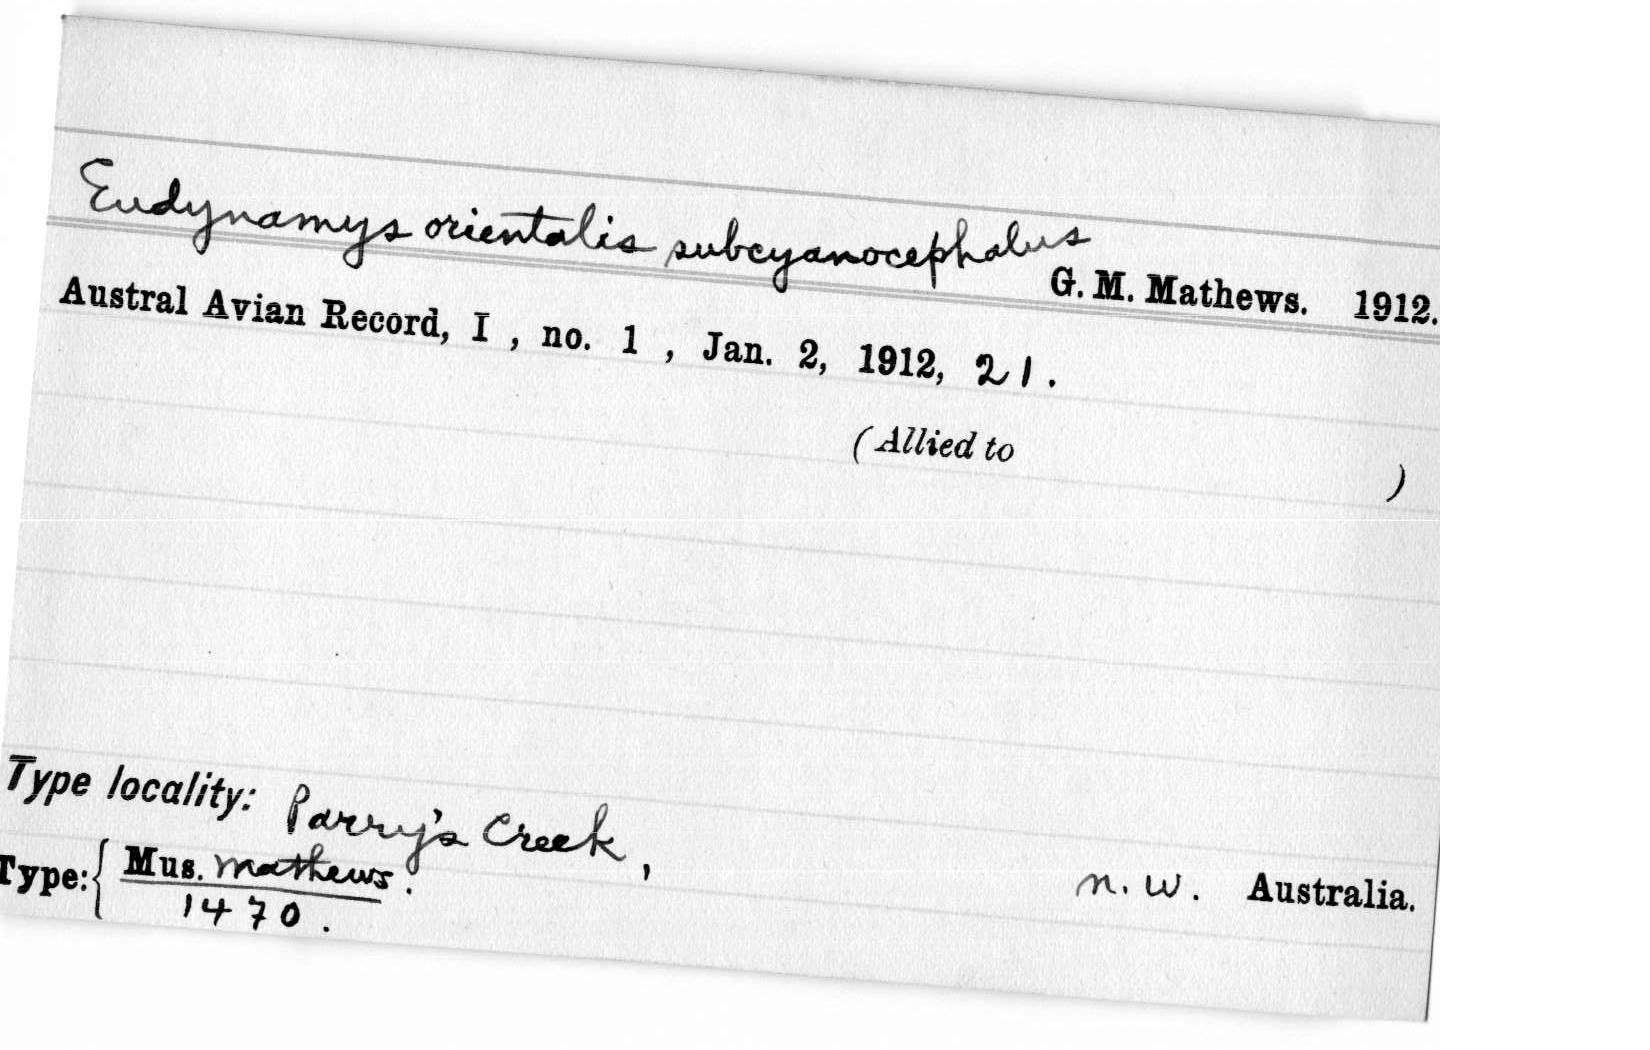 Eudynamys orientalis subcyanocephalus
G. M. Mathews. 1912.
Austral Avian Record, I , no. 1 , Jan. 2, 1912, 21.
(Allied to )
Type locality: Parry's Creek,
n. w. Australia.
Type: { Mus. Mathews.
1470.